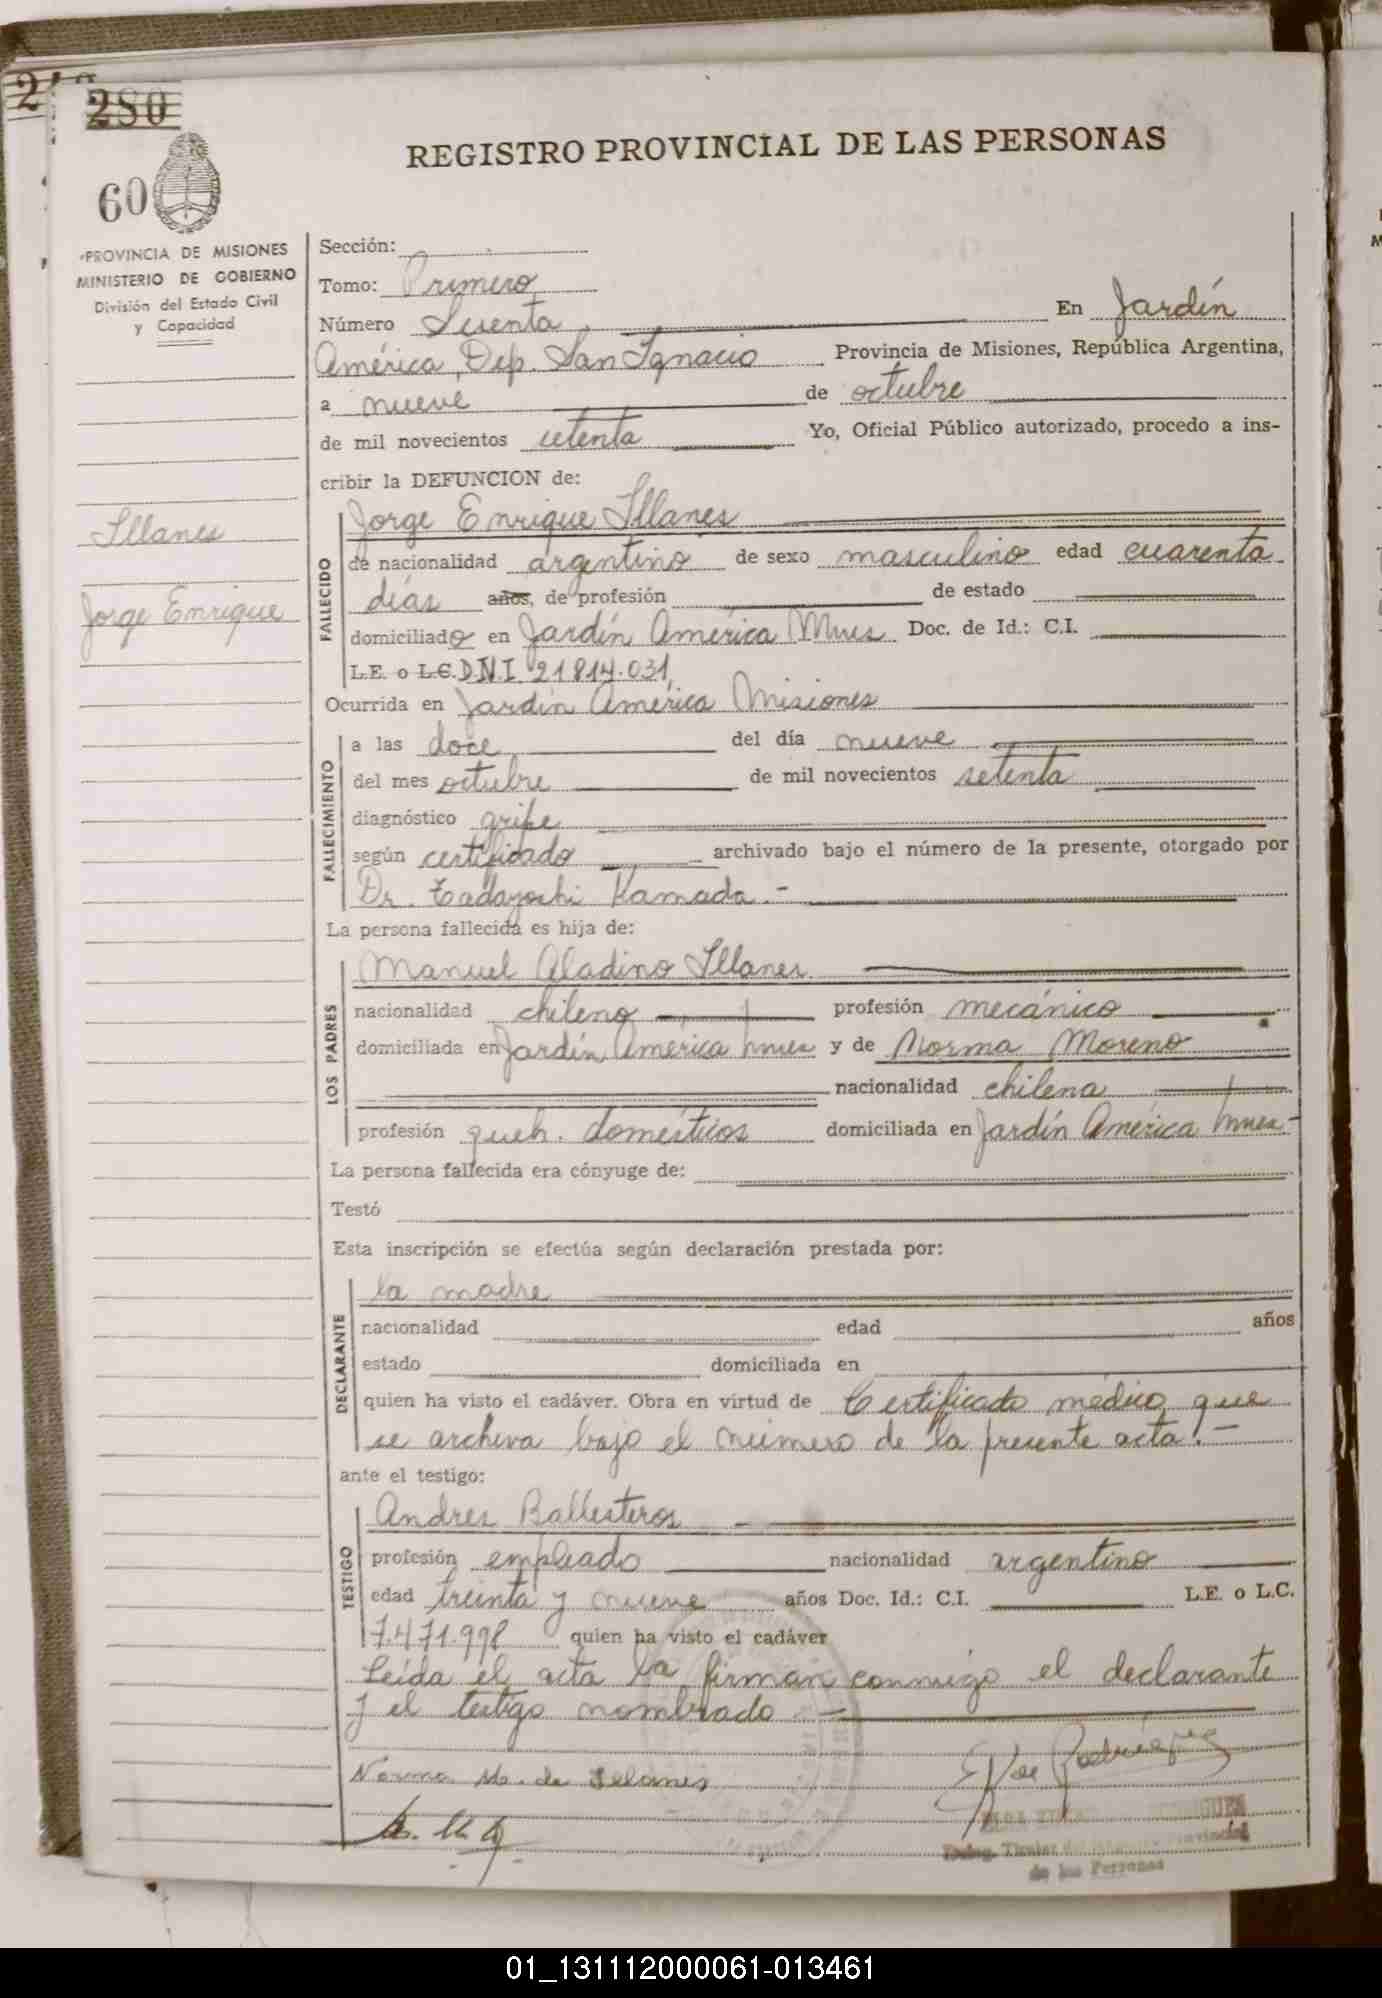 280
REGISTRO PROVINCIAL DE LAS PERSONAS
60
PROVINCIA DE MISIONES
MINISTERIO DE GOBIERNO
División del Estado Civil
y Capacidad
Sección:
Tomo: Primero
Número Sesenta En Jardín
América, Dep. San Ignacio Provincia de Misiones, República Argentina,
a nueve de octubre
de mil novecientos setenta Yo, Oficial Público autorizado, procedo a ins-
cribir la DEFUNCION de:
Illanes
Jorge Enrique
FALLECIDO
Jorge Enrique Illanes
de nacionalidad argentino de sexo masculino edad cuarenta
días años, de profesión de estado
domiciliado en Jardín América Mnes Doc. de Id.: C.I.
L.E. o L.C. D.N.I. 21.814.031
Ocurrida en Jardín América Misiones
FALLECIMIENTO
a las doce del día nueve
del mes octubre de mil novecientos setenta
diagnóstico gripe
según certificado archivado bajo el número de la presente, otorgado por
Dr. Tadayochi Kamada.-
La persona fallecida es hija de:
LOS PADRES
Manuel Aladino Illanes
nacionalidad chileno profesión mecánico
domiciliada en Jardín América Mnes y de Norma Moreno
nacionalidad chilena
profesión queh. domésticos domiciliada en Jardín América Mnes-
La persona fallecida era cónyuge de:
Testó
Esta inscripción se efectúa según declaración prestada por:
DECLARANTE
la madre
nacionalidad edad años
estado domiciliada en
quien ha visto el cadáver. Obra en virtud de Certificado médico que
se archiva bajo el número de la presente acta.-
ante el testigo:
TESTIGO
Andres Ballesteros
profesión empleado nacionalidad argentino
edad treinta y nueve años Doc. Id.: C.I. L.E. o L.C.
7.471.998 quien ha visto el cadáver
Leída el acta la firman conmigo el declarante
y el testigo nombrado
Norma M. de Illanes
Titular Provincial
de las Personas
01_131112000061-013461